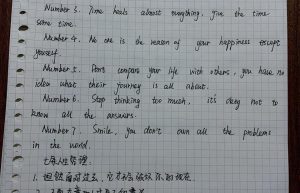 Number 3. Time heals almost everything, give the time
some time.
Number 4. No one is the reason of your happiness except
yourself
Number 5. Don't compare your life with others, you have no
idea what their journey is all about.
Number 6. Stop thinking too much, it's okay not to
know all the answers.
Number 7. Smile, you don't own all the problems
in the world.
七条人生哲理
1.